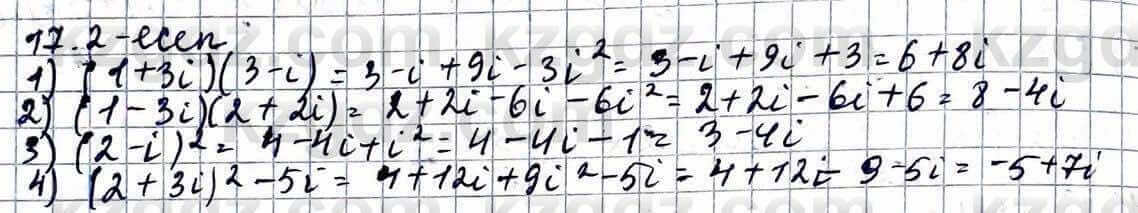 17.2-есеп
1) (1+3i)(3-i) = 3-i+9i-3i² = 3-i+9i+3 = 6+8i
2) (1-3i)(2+2i) = 2+2i-6i-6i² = 2+2i-6i+6 = 8-4i
3) (2-i)² = 4-4i+i² = 4-4i-1 = 3-4i
4) (2+3i)²-5i = 4+12i+9i²-5i = 4+12i-9-5i = -5+7i